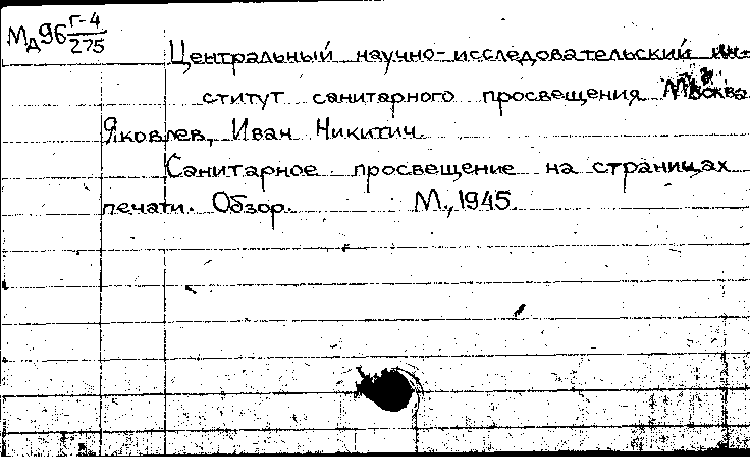 Мд96 Г-4/275
Центральный научно-исследовательский ин-
ститут санитарного просвещения Москва
Яковлев, Иван Никитич.
Санитарное просвещение на страницах
печати. Обзор. М., 1945.